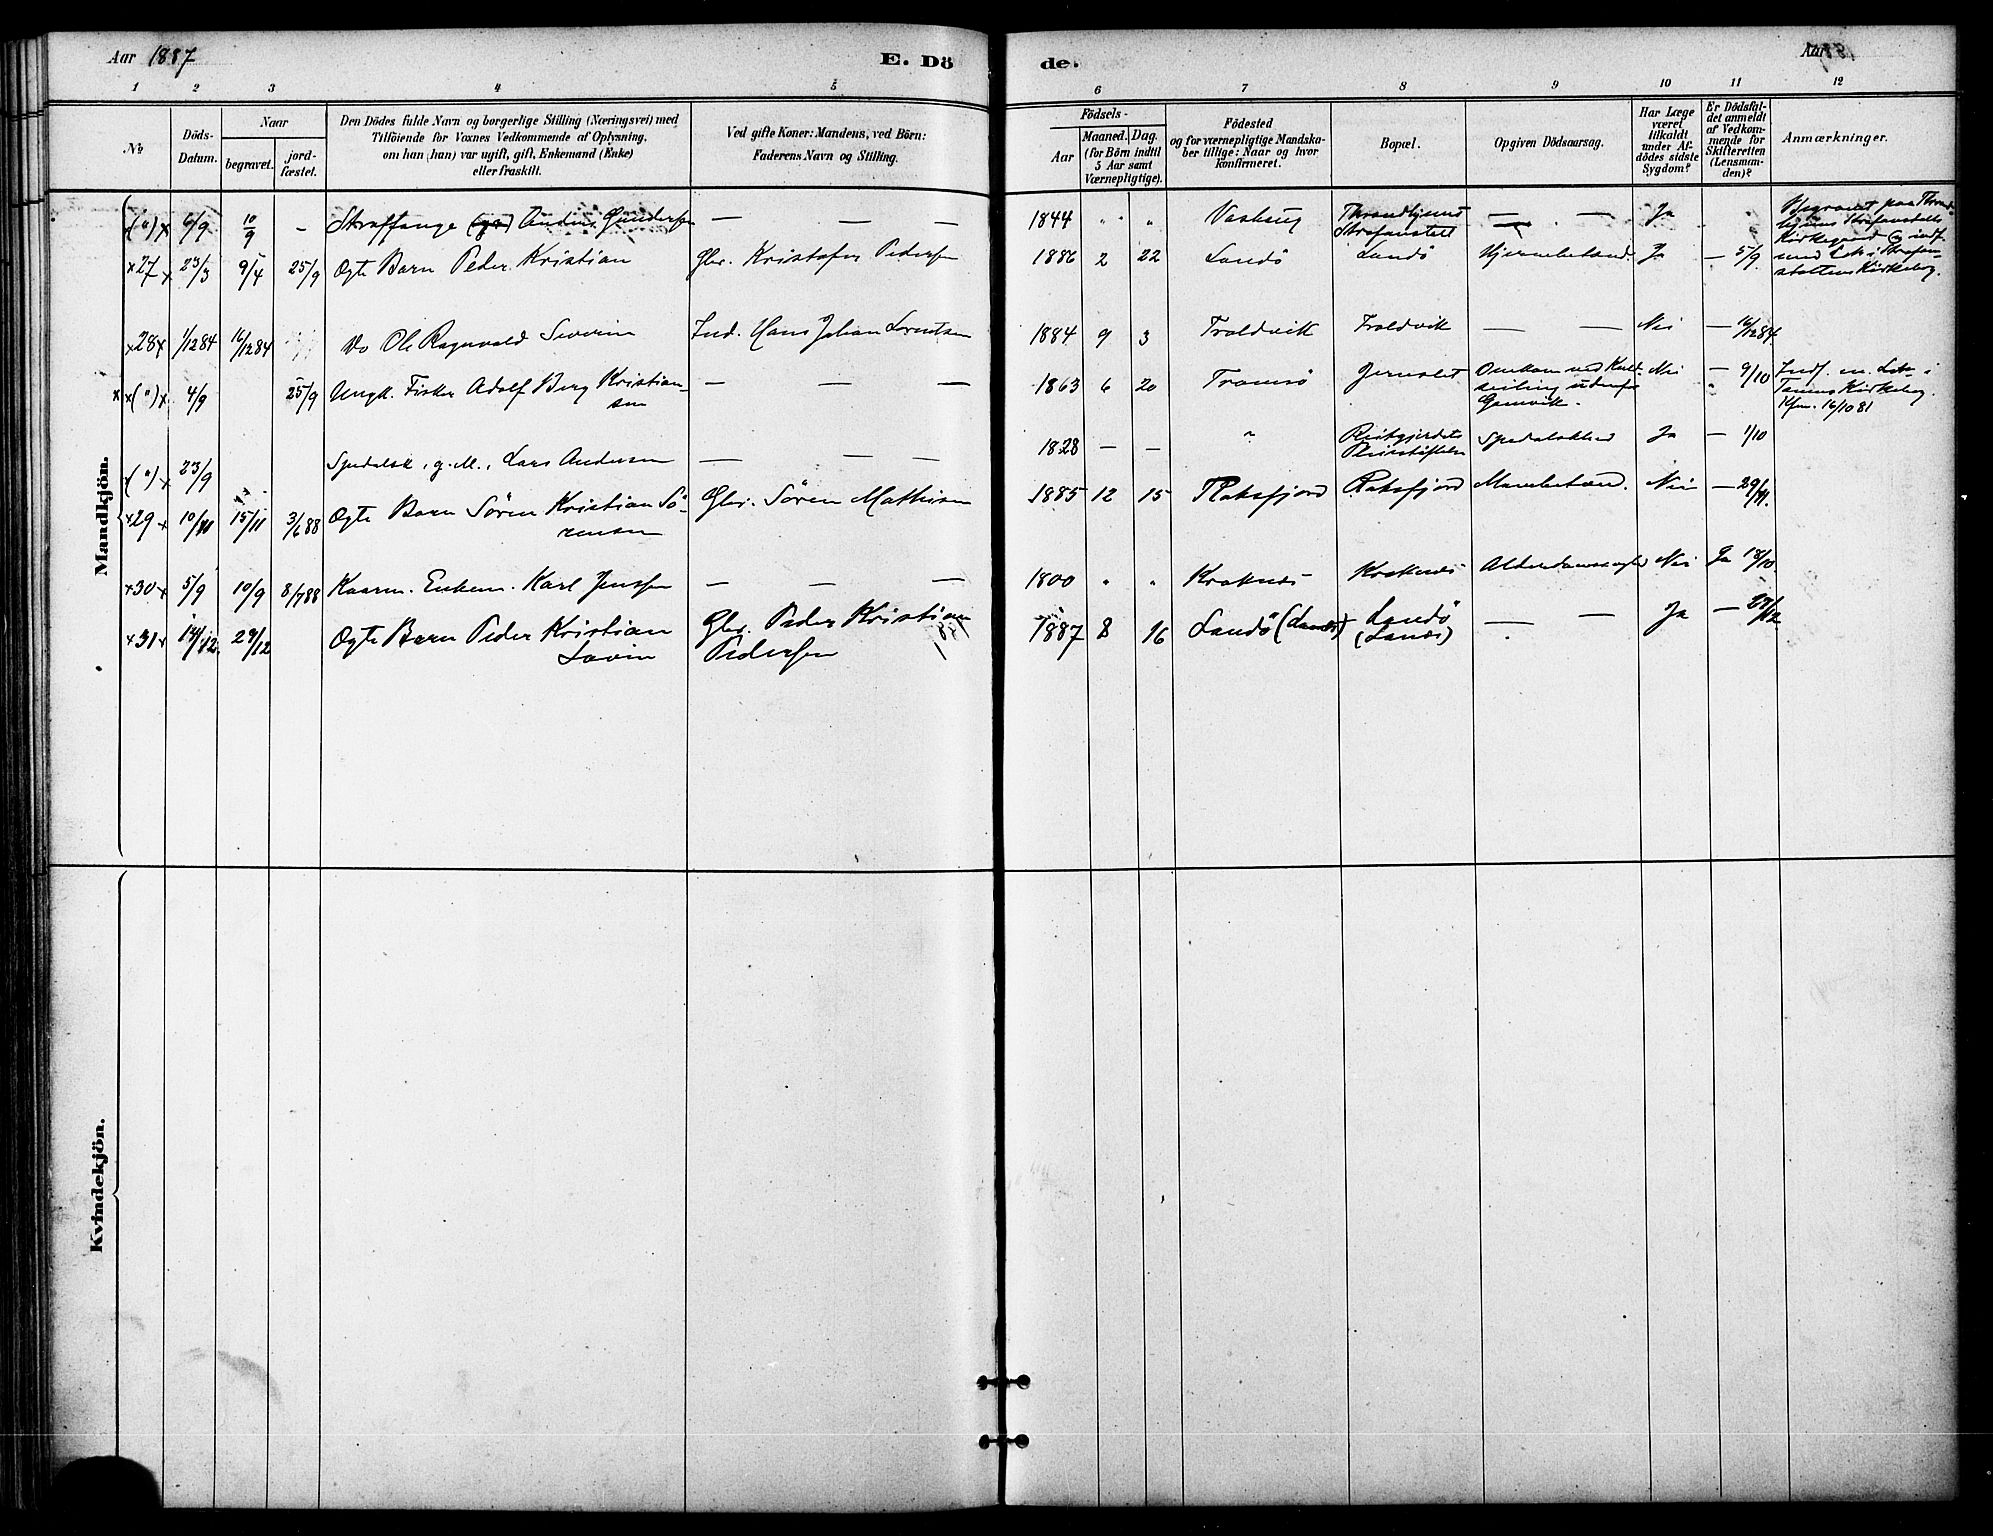 Aar 1887
E. Döde.
Aar
1 2 3 4 5 6 7 8 9 10 11 12
No
Döds-Datum.
Naar
begravet.
jord-fæstet.
Den Dödes fulde Navn og borgerlige Stilling (Næringsvei) med
Tilföiende for Voxnes Vedkommende af Oplysning,
om han (hun) var ugift, gift, Enkemand (Enke)
eller fraskilt.
Ved gifte Koner: Mandens, ved Börn:
Faderens Navn og Stilling.
Födsels-
Aar
Maaned. Dag.
(for Börn indtil
5 Aar samt
Værnepligtige).
Födested
og for værnepligtige Mandska-
ber tillige: Naar og hvor
konfirmeret.
Bopæl.
Opgiven Dödsaarsag.
Har Læge
været
tilkaldt
under Af-
dödes sidste
Sygdom?
Er Dödsfal-
det anmeldt
af Vedkom-
mende for
Skifteretten
(Lensman-
den)?
Anmærkninger.
Mandkjön.
(") 6/9 10/9 - Straffange Anders Gundersen — — — 1844 " " Throndhjems Strafanstalt — — Ja
Begravet paa Thrond-
hjems Strafanstalts
Kirkegaard og indf.
27 23/3 9/4 25/9 Ægte Barn Peder Kristian Gbr. Kristofer Pedersen 1886 2 22 Sandö Sandö Ja — 5/9
28 1/12 84 16/12 84 Do Ole Ragnvald Severin Ind. Hans Johan Lorentsen 1884 9 3 Troldvik Troldvik — — Nei — 16/12 84
(") 4/9 25/9 Ungk. Fisker Adolf Berg Kristian-
sen — — — 1863 6 20 Tromsö Omkom ved Kuld-
seiling udenfor
Gamvik. Nei — 9/10
Kirkebog.
16/10 81
(") 23/9 Spedalsk, g. M., Lars Andersen — — — 1828 — — " Reitgjerdets
Pleiestiftelse Spedalskhed Ja — 1/10
29 10/11 15/11 3/6 88 Ægte Barn Sören Kristian Sö-
rensen Gbr. Sören Mathisen 1885 12 15 Raksfjord Nei — 29/11.
30 5/9 10/9 8/7 88 Kaarm. Enkem. Karl Jenssen — — — 1800 " " Kraknes Kraknes Alderdomssvaghed Nei Ja 18/10
31 14/12. 29/12 Ægte Barn Peder Kristian
Lovin Gbr. Peder Kristian
Pedersen 1887 8 16 Sandö Sandö — — Ja —
Kvindekjön.